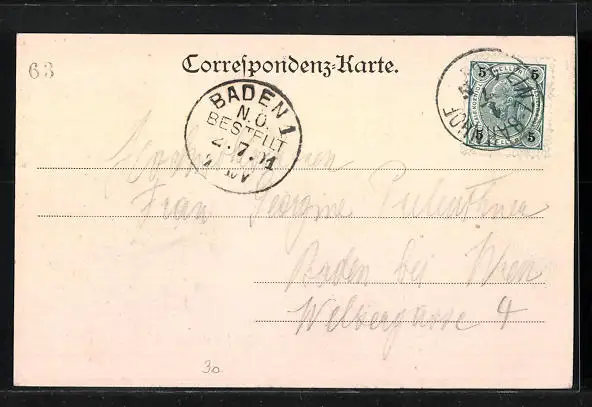 63
Correspondenz-Karte.
BADEN 1
N.Ö.
BESTELLT
2.7.01
LINZ
BAHNHOF
5 HELLER 5
5 5
Hochwohlgeboren
Frau Georgine
Baden bei Wien
4
30